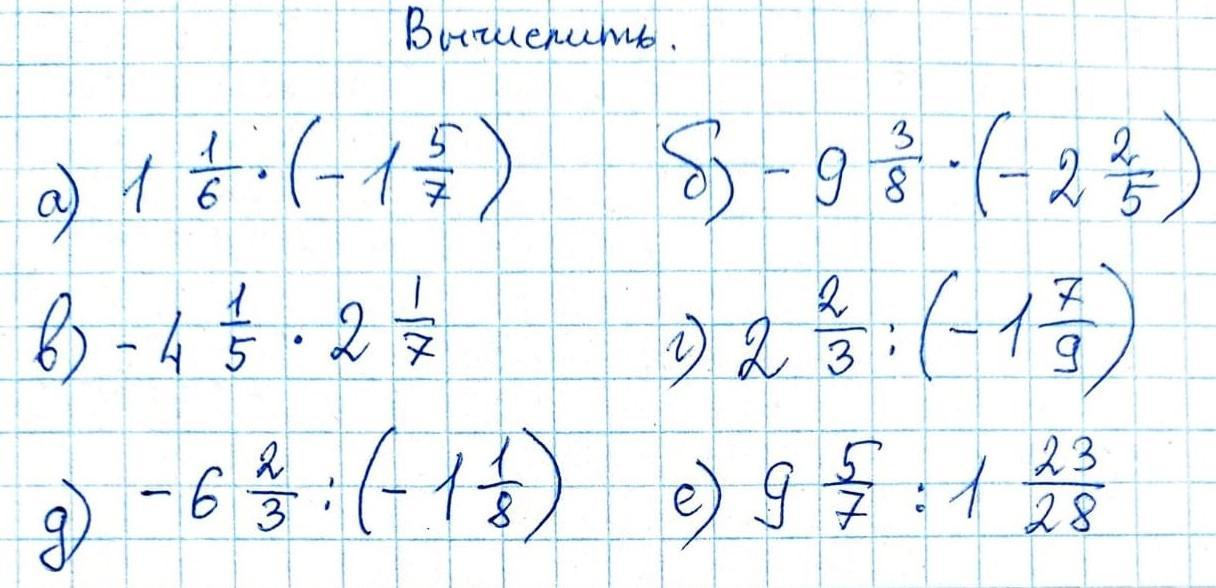 Вычислить.
а) 1 1/6 · (-1 5/7) б) -9 3/8 · (-2 2/5)
в) -4 1/5 · 2 1/7 г) 2 2/3 : (-1 7/9)
д) -6 2/3 : (-1 1/8) е) 9 5/7 : 1 23/28